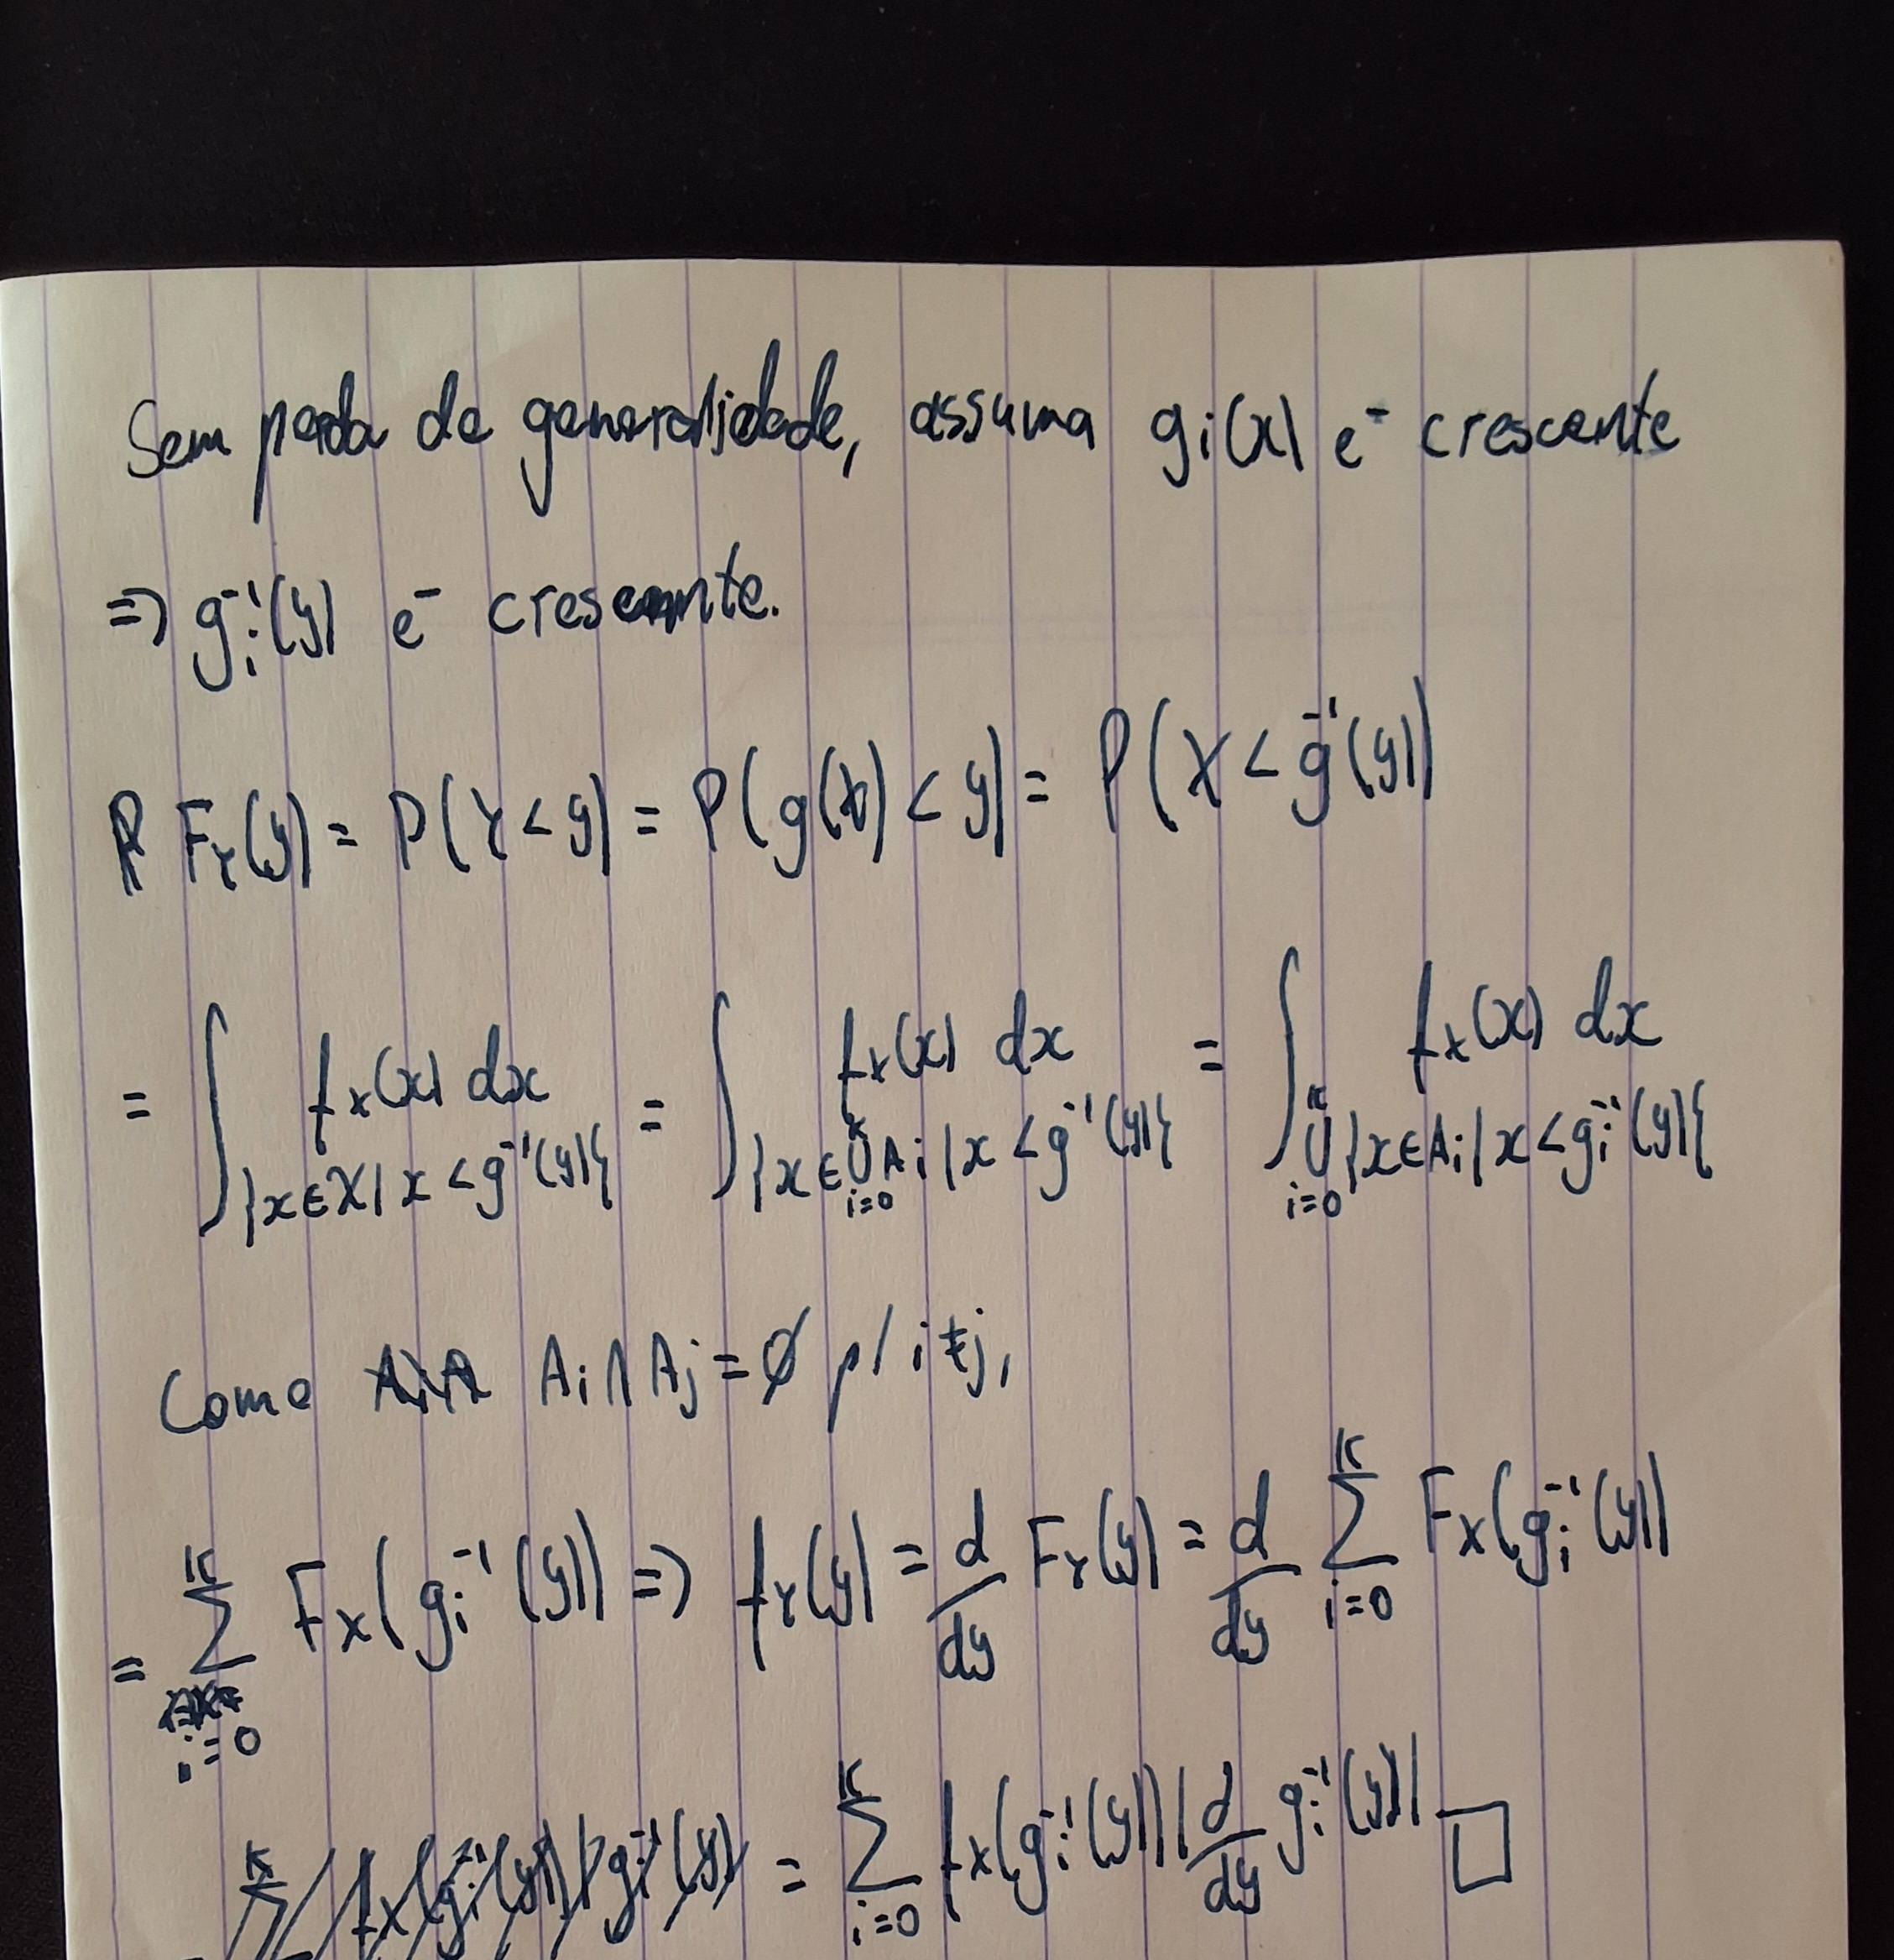 Sem perda de generalidade, assuma gi(x) e- crescente
=> gi⁻¹(y) e- crescente.
P F_Y(y) = P(Y < y) = P(g(x) < y) = P(X < g⁻¹(y))
= ∫_{x∈X | x < g⁻¹(y)} f_X(x) dx = ∫_{x∈⋃_{i=0}^{k} A_i | x < g⁻¹(y)} f_X(x) dx = ∫_{⋃_{i=0}^{k} {x∈A_i | x < g_i⁻¹(y)}} f_X(x) dx
Como A_i ∩ A_j = ∅ p/ i ≠ j,
= ∑_{i=0}^{k} F_X(g_i⁻¹(y)) => f_Y(y) = d/dy F_Y(y) = d/dy ∑_{i=0}^{k} F_X(g_i⁻¹(y))
= ∑_{i=0}^{k} f_X(g_i⁻¹(y)) | d/dy g_i⁻¹(y) | □